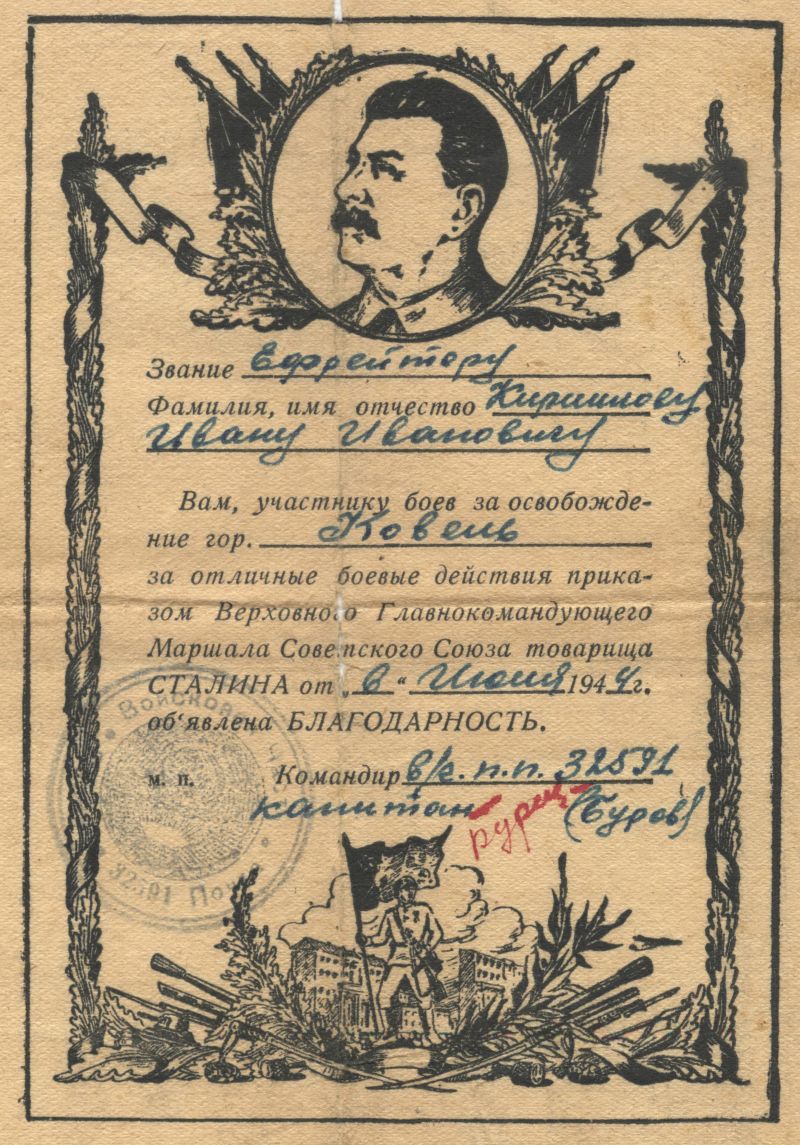 Звание Ефрейтору
Фамилия, имя отчество Кириллову
Ивану Ивановичу
Вам, участнику боев за освобожде-
ние гор. Ковель
за отличные боевые действия прика-
зом Верховного Главнокомандующего
Маршала Советского Союза товарища
СТАЛИНА от „6“ Июля 1944г.
об'явлена БЛАГОДАРНОСТЬ.
м. п. Командир в/ч. п.п. 32591
капитан (Буров)
Войсковая
32591 Почта